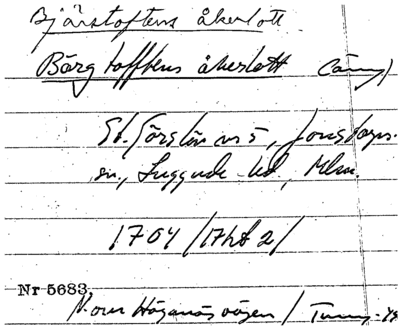 Bjärstoftens åkerlott
Bärgtofftens åkerlott
St. Görslöv nr 5, Jonstorps
sn., Luggude hd, Mlm.
1704 / 17ht 2 /
Nr 5683
Norr Höganäsvägen /